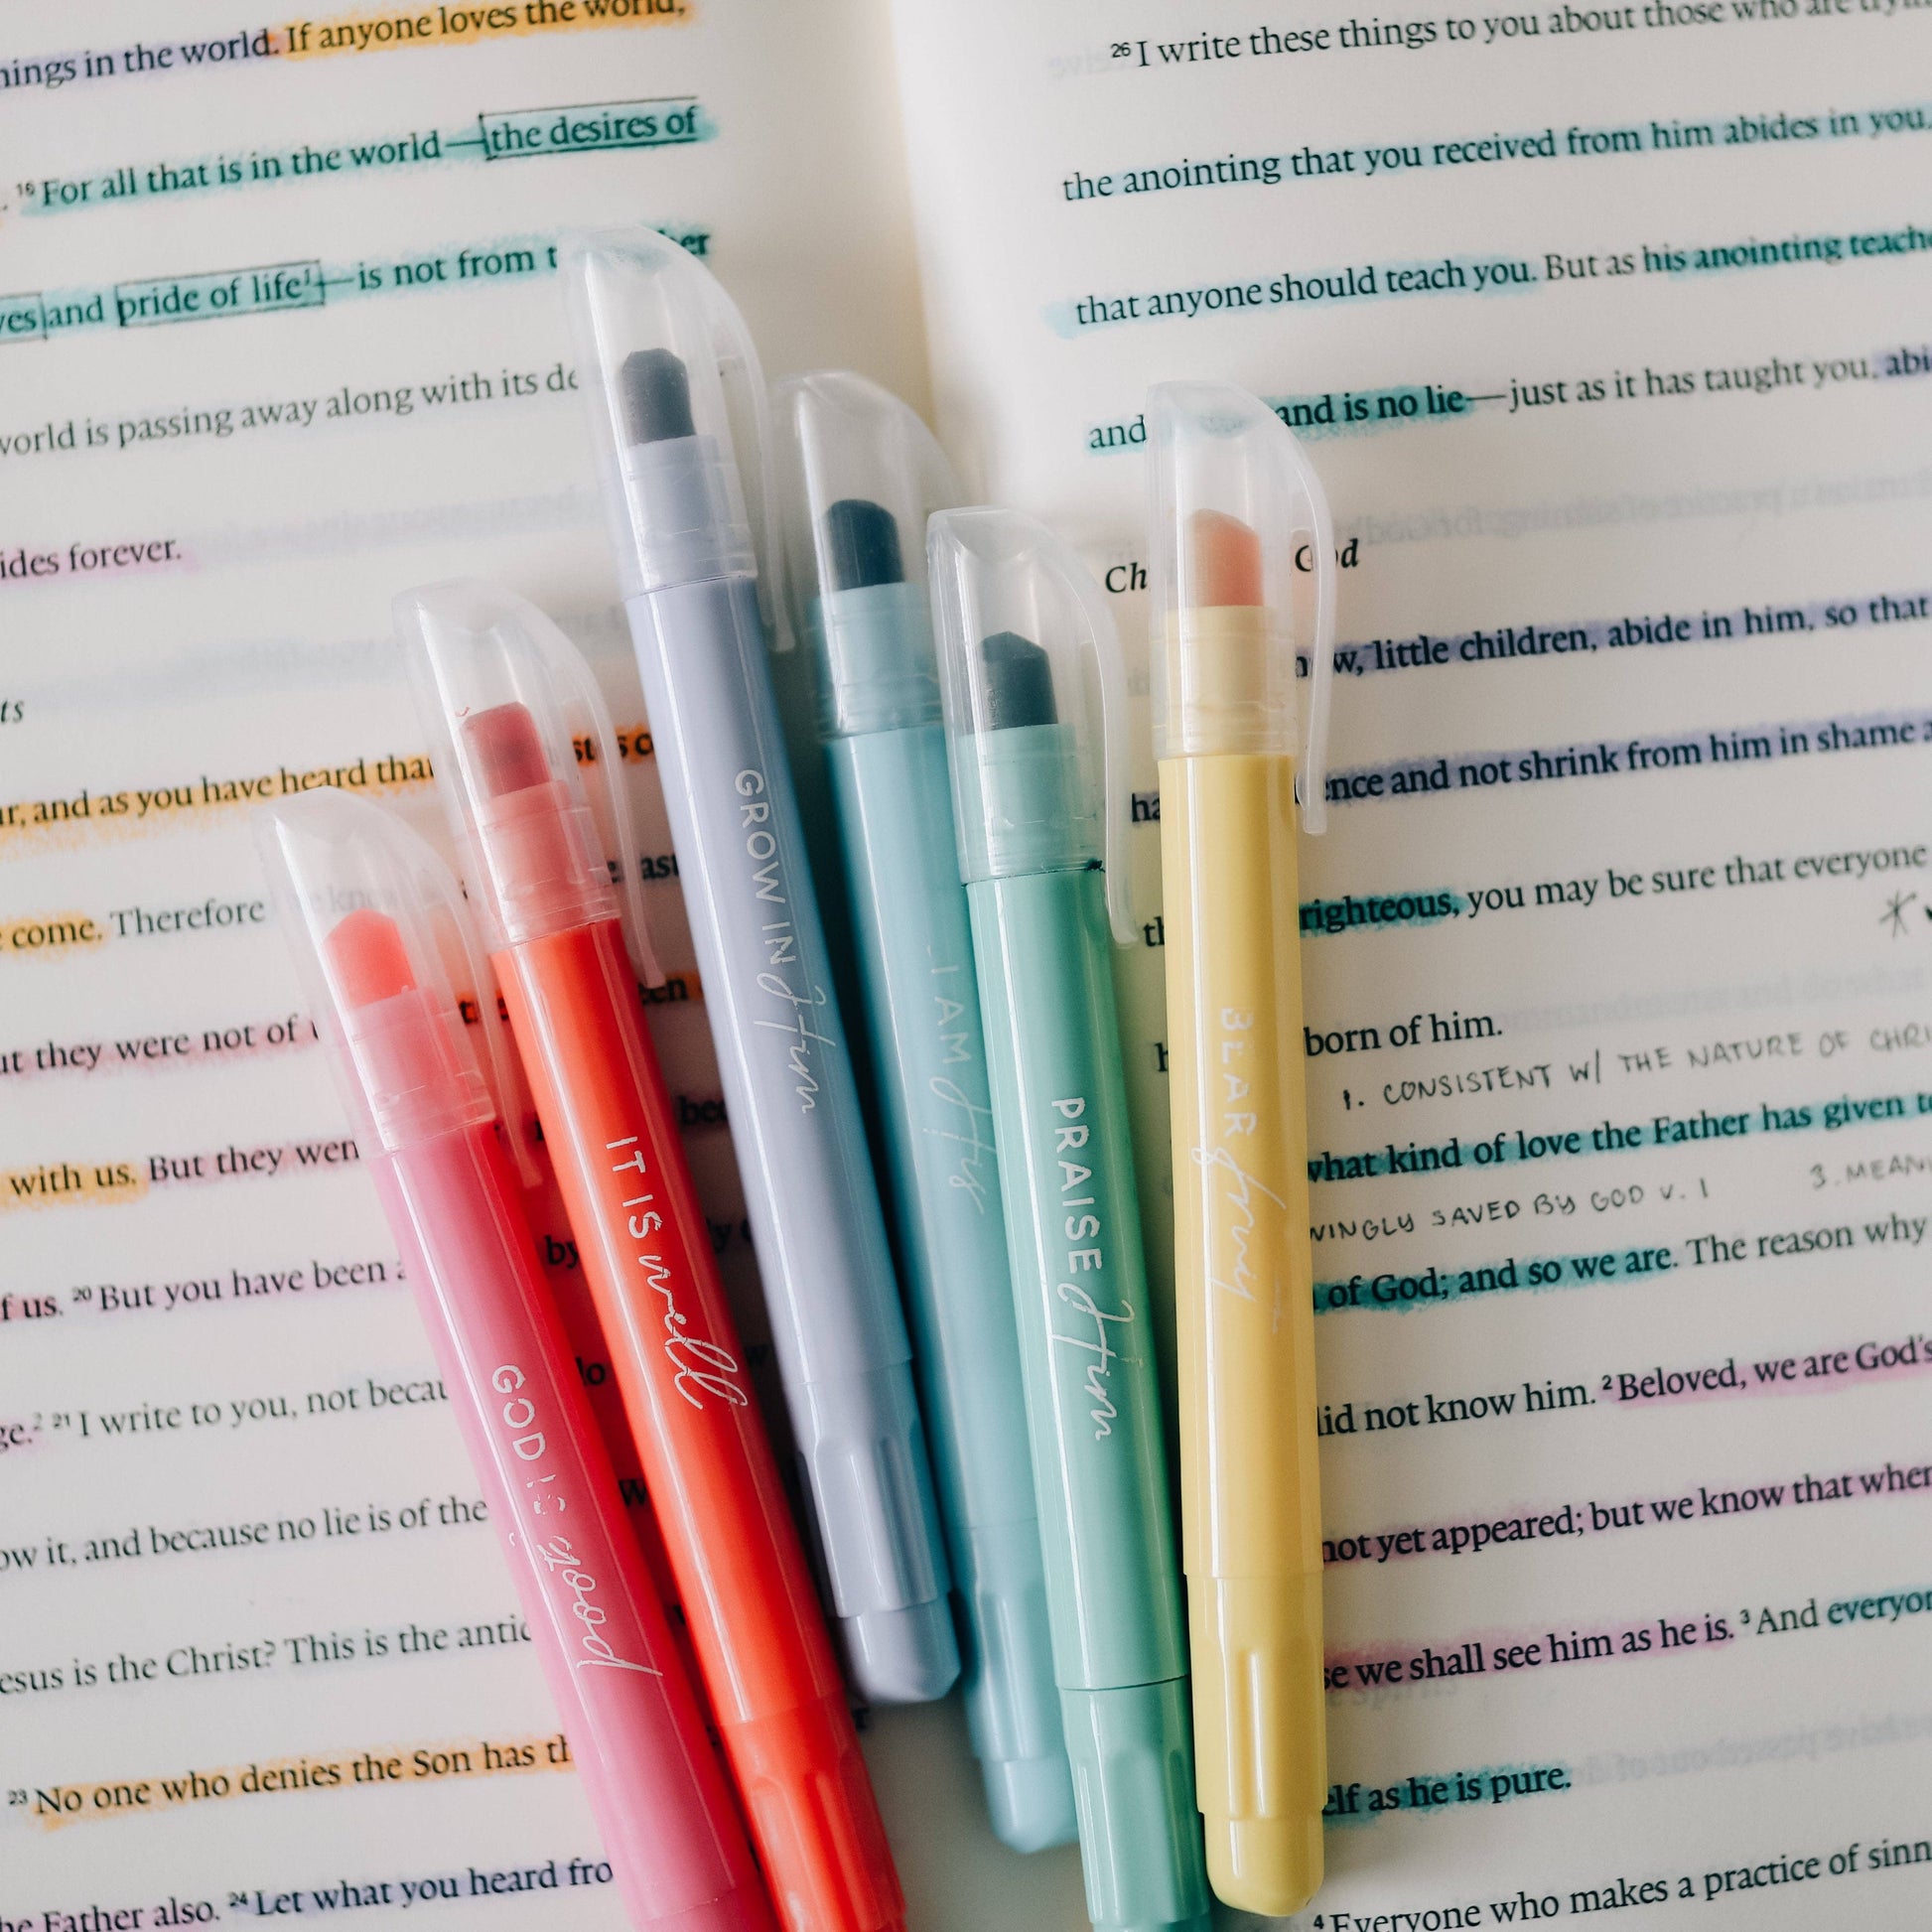 things in the world. If anyone loves the world,
16 For all that is in the world—the desires of
and pride of life1—is not from
world is passing away along with its
forever.
and as you have heard that
come. Therefore
they were not of
with us. But they
us. 20 But you have been
2 21 I write to you, not
it, and because no lie is of the
is the Christ? This is the
23 No one who denies the Son has
Father also. 24 Let what you heard
26 I write these things to you about those who are
the anointing that you received from him abides in you,
that anyone should teach you. But as his anointing
and and is no lie—just as it has taught you,
God
little children, abide in him, so that
and not shrink from him in shame
righteous, you may be sure that everyone
born of him.
1. CONSISTENT W/ THE NATURE OF
what kind of love the Father has given
SAVED BY GOD V. 1 3.
of God; and so we are. The reason why
did not know him. 2 Beloved, we are God's
not yet appeared; but we know that when
we shall see him as he is. 3 And
as he is pure.
4 Everyone who makes a practice of
GOD is good
IT IS well
GROW IN Him
I AM His
PRAISE Him
BEAR fruit